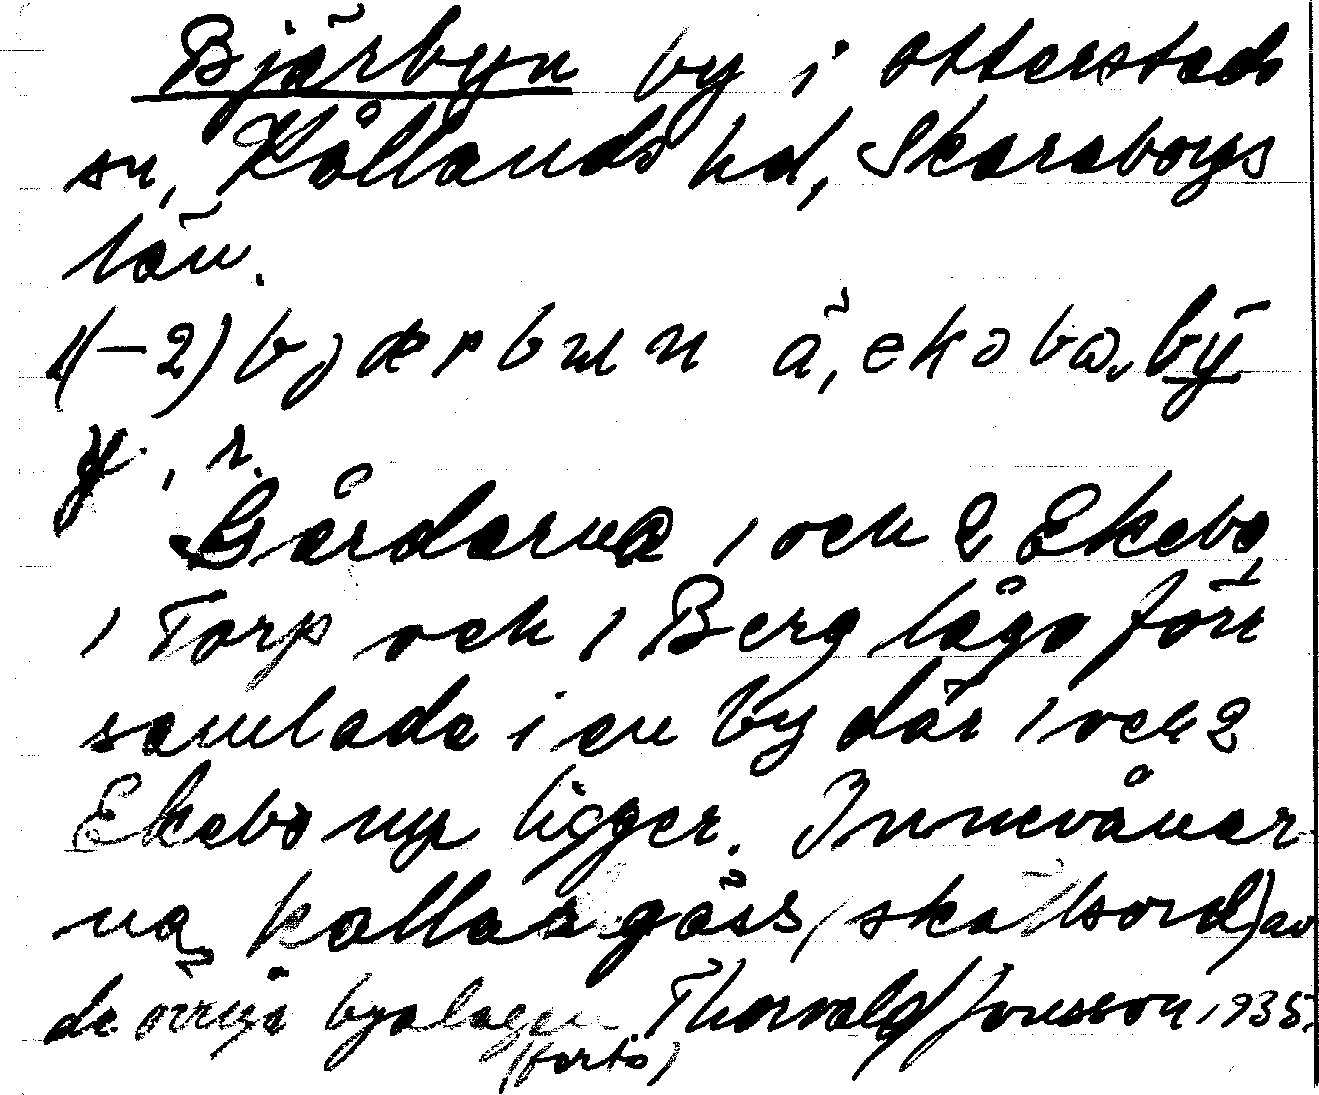 Bjärbyn by i Otterstads
sn, Kållands hd, Skaraborgs
län.
by
Gårdarna 1 och 2 Ekebo
1 Torp och 1 Berg lågo förr
samlade i en by där 1 och 2
Ekebo nu ligger. Innevånar
na kallas gäss (skällsord) av
de övriga byalagen. Thorvald Jonsson 1935.
(forts)